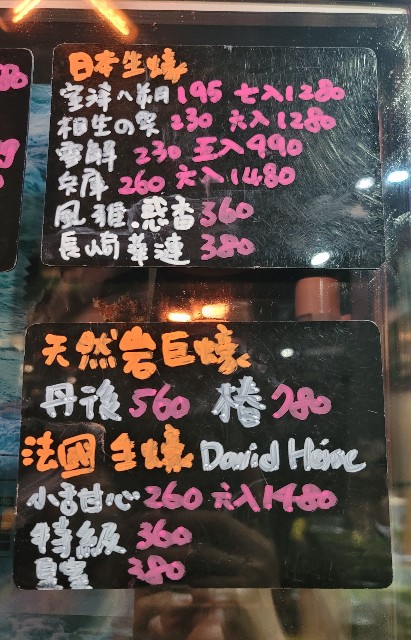 日本生蠔
室津八朔 195 七入1280
相生の笑 230 六入1280
雪解 230 五入990
兵庫 260 六入1480
風雅.惑香 360
長崎華漣 380
天然岩巨蠔
丹後 560 椿 280
法國生蠔 David Hérve
小吉甘心 260 六入1480
特級 360
皇室 380